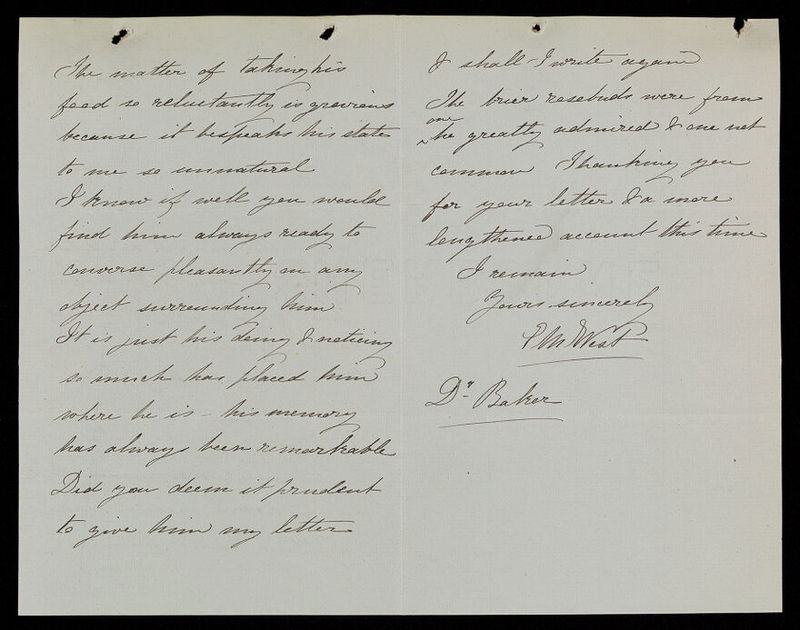 The matter of taking his
food so reluctantly is grevious
because it bespeaks his state
to me so unnatural
I know if well you would
find him always ready to
converse pleasantly on any
object surrounding him
It is just his doing & noticing
so much has placed him
where he is - his memory
has always been remarkable
Did you deem it prudent
to give him my letter
I shall I write again
The brier rosebuds were from
one
he greatly admired & are not
common Thanking you
for your letter & a more
lengthened account this time
I remain
Yours sincerely
West
Dr Baker